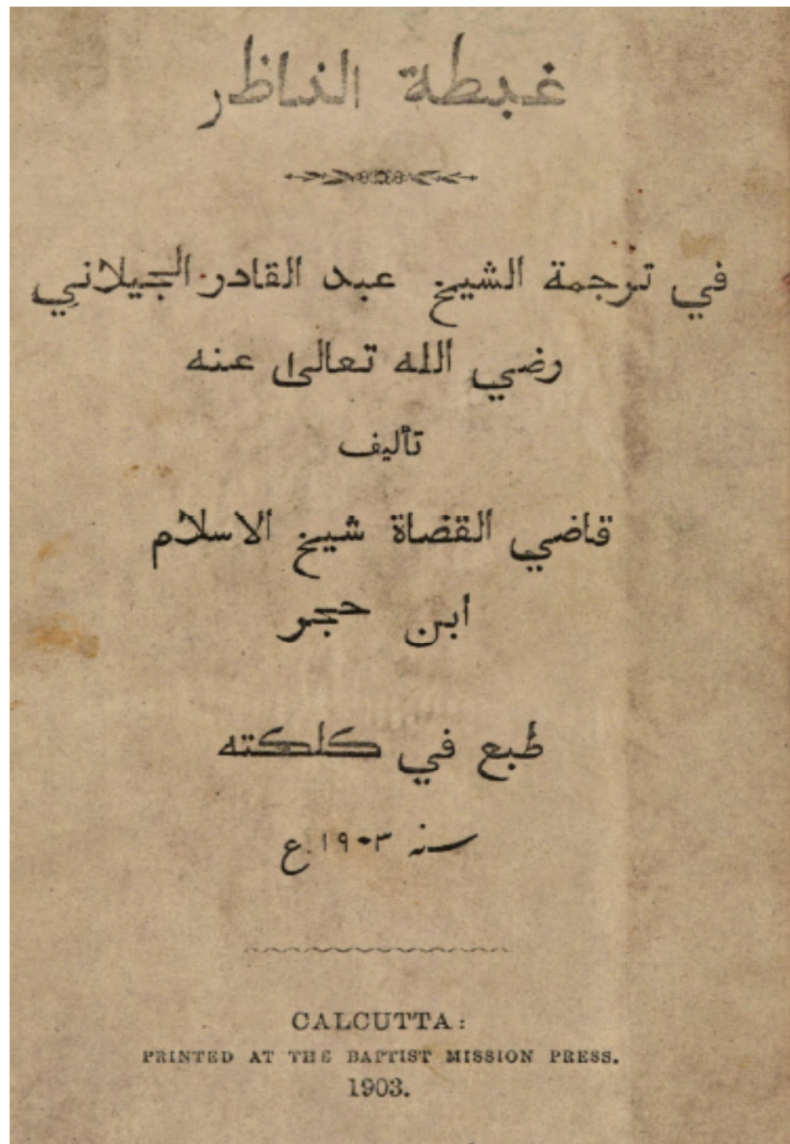 غبطة الناظر
في ترجمة الشيخ عبد القادر الجيلاني
رضي الله تعالى عنه
تأليف
قاضي القضاة شيخ الاسلام
ابن حجر
طبع في كلكته
سنه ١٩٠٣ ع
CALCUTTA:
PRINTED AT THE BAPTIST MISSION PRESS.
1903.